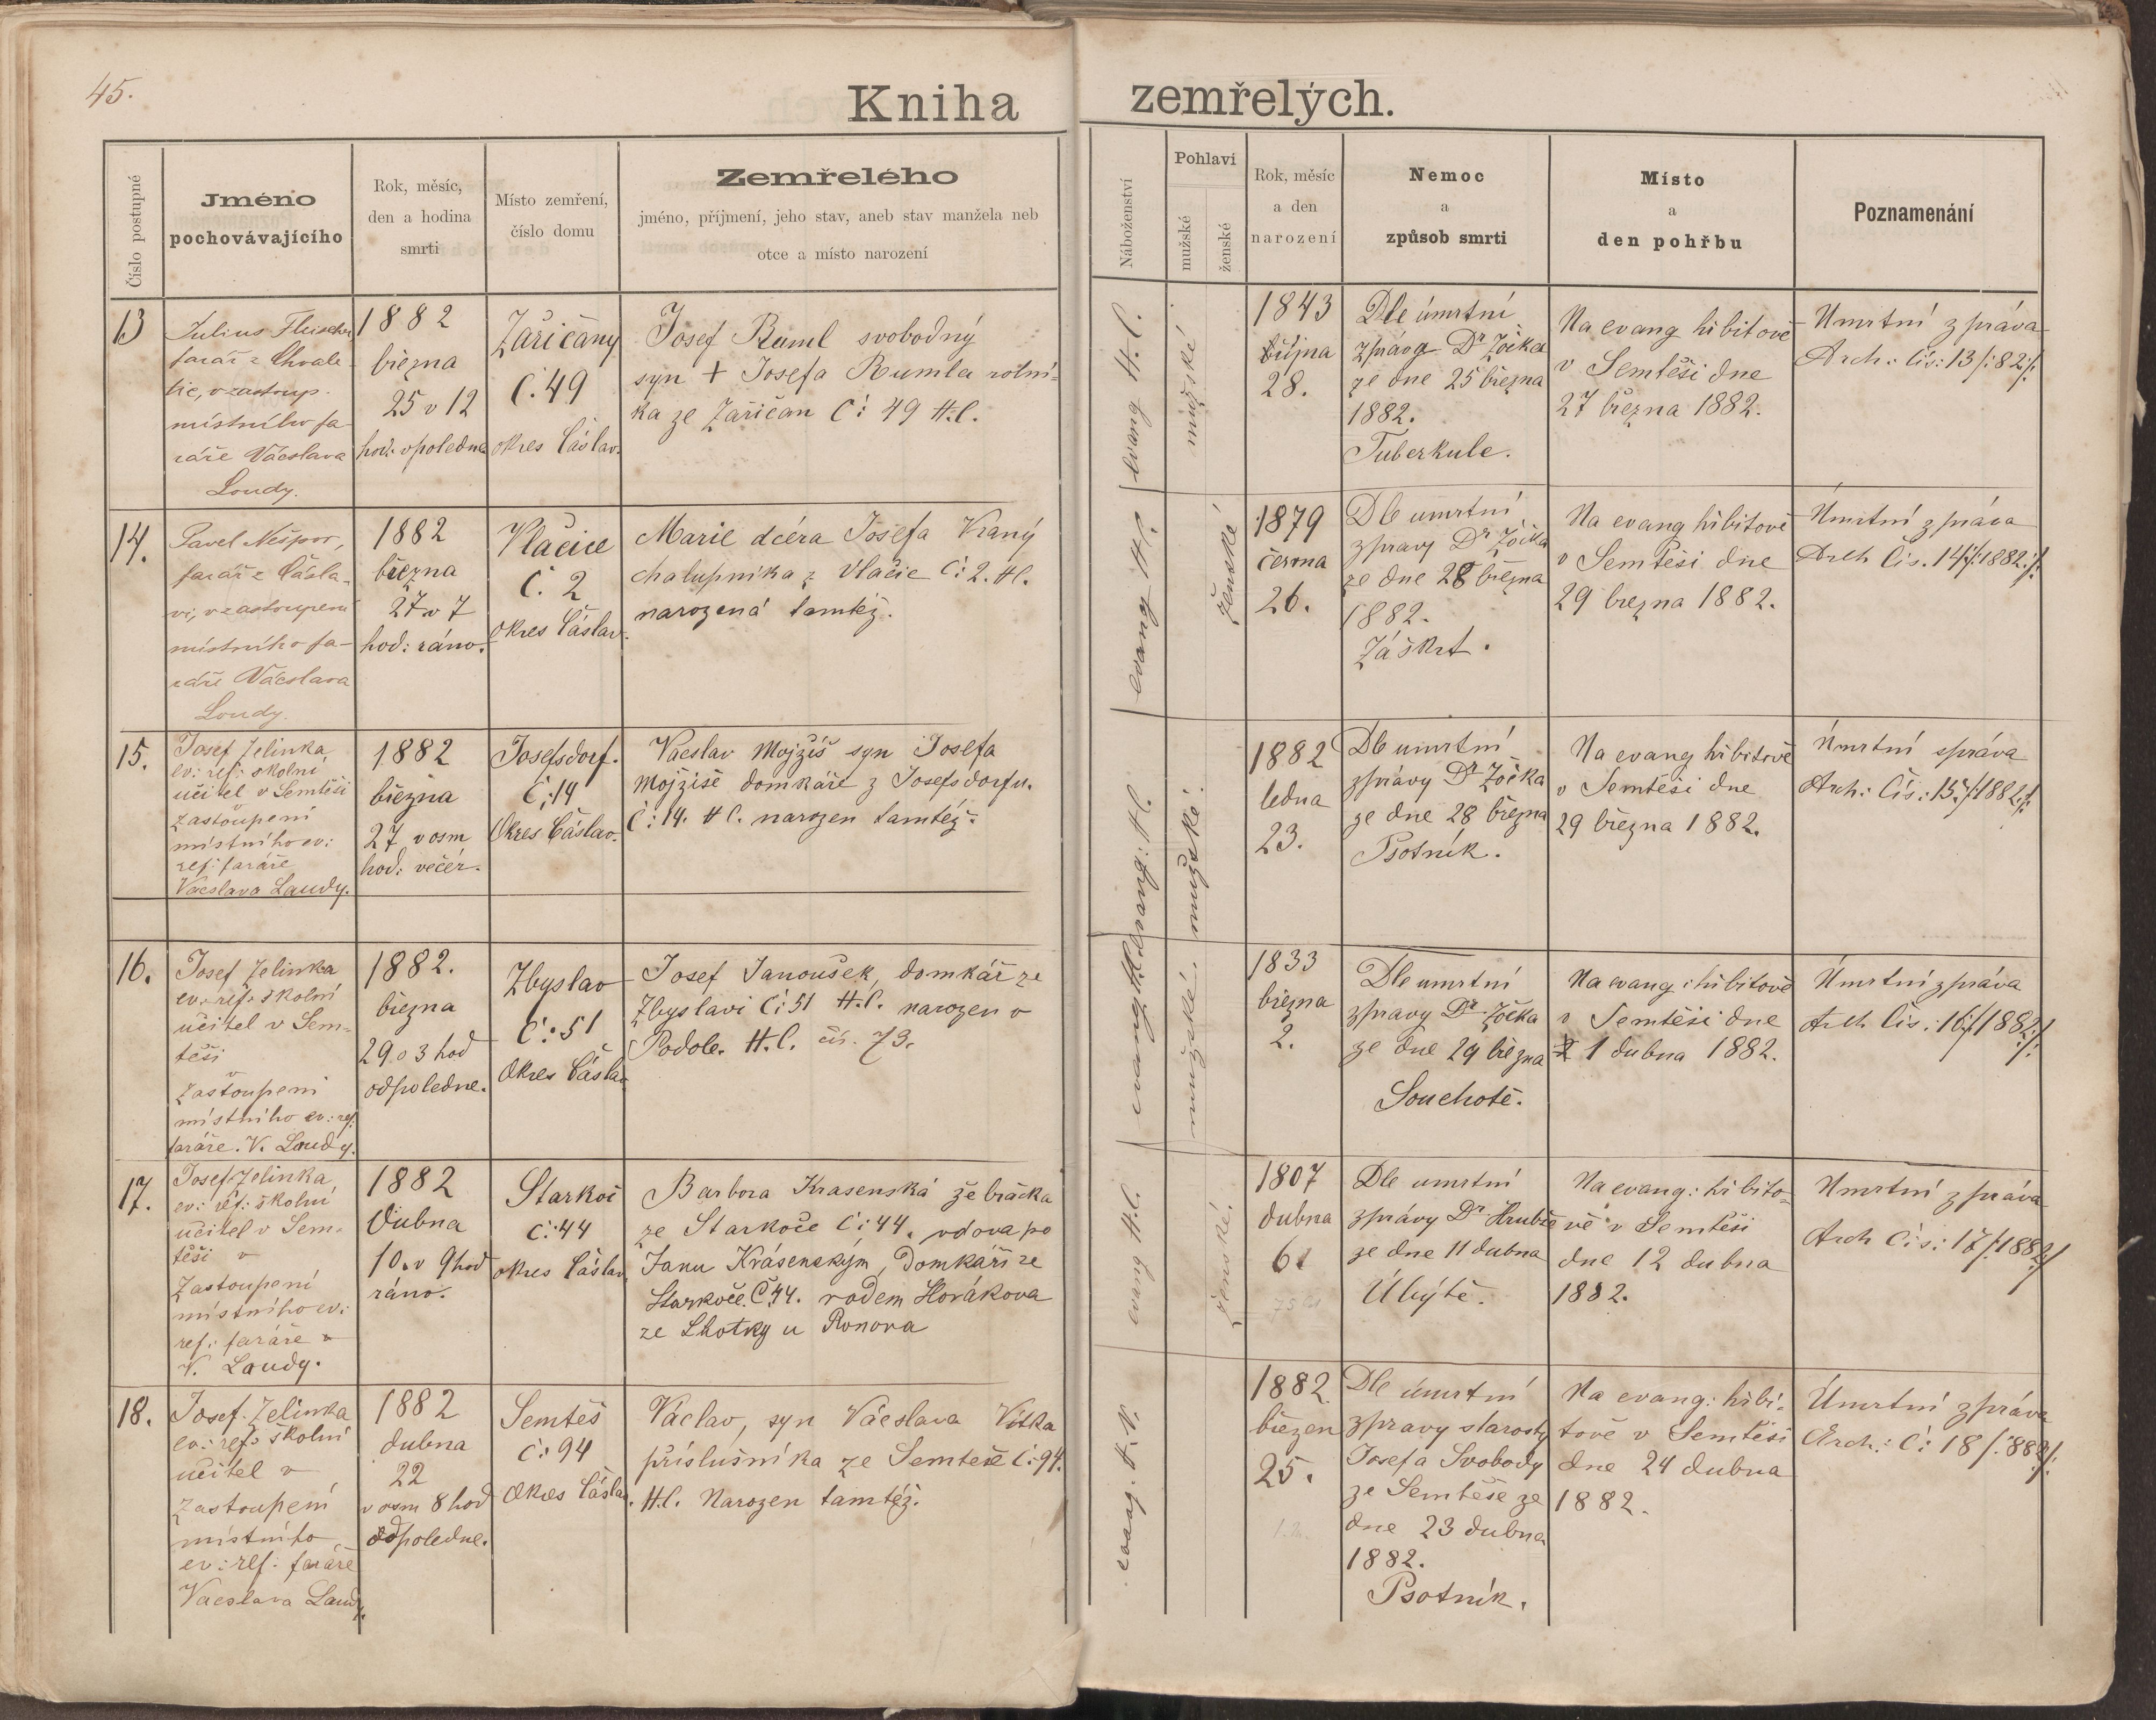 45.
Kniha zemřelých.
Číslo postupné
Jméno
pochovávajícího
Rok, měsíc,
den a hodina
smrti
Místo zemření,
číslo domu
Zemřelého
jméno, příjmení, jeho stav, aneb stav manžela neb
otce a místo narození
Náboženství
Pohlaví
mužské
ženské
Rok, měsíc
a den
narození
Nemoc
a
způsob smrti
Místo
a
den pohřbu
Poznamenání
13
Julius Fleischer
farář z Chvale-
tic, v zastoup.
místního fa-
ráře Václava
Loudy.
1882
března
25 v 12
hod: v poledne
Žáričany
Č. 49
okres Čáslav.
Josef Ruml svobodný
syn + Josefa Rumla rolní-
ka ze Zařičan Č: 49 H.C.
evang H.C.
mužské
1843
října
28.
Dle úmrtní
zpravy Dr Zöčka
ze dne 25 března
1882.
Tuberkule.
Na evang hřbitově
v Semtěši dne
27 března 1882.
Umrtní zpráva
Arch: čís: 13/:82:/.
14.
Pavel Nešpor,
farář z Čásla-
vi, v zastoupení
místního fa-
ráře Václava
Loudy.
1882
března
27 v 7
hod: ráno.
Vlačice
Č. 2
okres Čáslav.
Marie dcéra Josefa Vraný
chalupníka z Vlačic Č: 2. H.C.
narozená tamtéž.
evang H.C.
ženské
1879
června
26.
Dle umrtní
zpravy Dr Zöčka
ze dne 28 března
1882.
Záškrt.
Na evang hřbitově
v Semtěši dne
29 března 1882.
Úmrtní zpráva
Arch Čís. 14/:1882:/.
15.
Josef Jelinka
ev: ref: školní
učitel v Semtěši
v
zastoupení
místního ev:
ref: faráře
Václava Laudy.
1882
března
27 v osm
hod: večér.
Josefsdorf.
Č: 14
Okres Čáslav.
Václav Mojžíš syn Josefa
Mojžíše domkáře z Josefsdorfu.
Č: 14. H.C. narozen tamtéž.
evang: H.C.
mužské.
1882
ledna
23.
Dle umrtní
zprávy Dr Zöčka
ze dne 28 března
Psotník.
Na evang hřbitově
v Semtěši dne
29 března 1882.
Úmrtní zpráva
Arch: Čís: 15:/:1882:/:
16.
Josef Jelinka
ev: ref: školní
učitel v Sem-
těši
v
zastoupení
místního ev: ref:
faráře. V. Laudy.
1882.
března
29 o 3 hod
odpoledne.
Zbyslav
Č: 51
Okres Čáslav
Josef Janoušek, domkář ze
Zbyslavi Č: 51 H.C. narozen v
Podole. H.C. čís. 73.
evang H.C.
mužské.
1833
března
2.
Dle umrtní
zpravy Dr Zöčka
ze dne 29 března
Souchotě.
Na evang: hřbitově
v Semtěši dne
1 dubna 1882.
Úmrtní zpráva
Arch Čis: 16:/1882:/:
17.
Josef Jelinka,
ev: ref: školní
učitel v Sem-
těši v
Zastoupení
místního ev:
ref: faráře
V. Laudy.
1882
Dubna
10. v 9 hod
ráno.
Starkoč
Č: 44
okres Čáslav
Barbora Krasenská žebračka
ze Starkoče Č: 44. vdova po
Janu Krásenským, Domkáři ze
Starkoče. Č. 44. rodem Horákova
ze Lhotky u Ronova
evang H.C.
ženské.
1807
dubna
6
75 let
Dle umrtní
zprávy Dr Hrubše
ze dne 11 dubna
Úbytě.
Na evang: hřbito-
vě v Semtěši
dne 12 dubna
1882.
Umrtní zpráva
Arch Čís: 17/:1882/
18.
Josef Jelinka
ev: ref: školní
učitel v
zastoupení
místního
ev: ref: faráře
Vaeslava Laudy.
1882
dubna
22
v osm 8 hod
odpoledne.
Semtěš
Č: 94
Okres Čáslav.
Václav, syn Václava Vítka
příslušníka ze Semteše Č: 94.
H.C. Narozen tamtéž.
evang: H.V.
1882
březen
25.
Dle úmrtní
zpravy starosty
Josefa Svobody
ze Semtěše ze
dne 23 dubna
1882.
Psotník.
Na evang: hřbi-
tově v Semtěši
dne 24 dubna
1882.
Úmrtní zpráva
Arch: Č: 18/:882/: